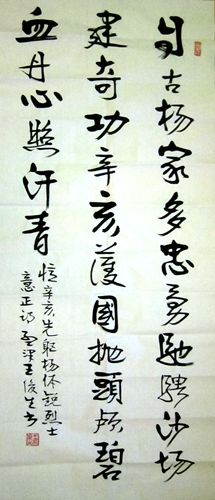 自古杨家多忠勇驰骋沙场
建奇功辛亥護國抛头颅碧
血丹心照汗青
忆辛亥先躯杨体锐烈士
意正诗 孟津王俊生书